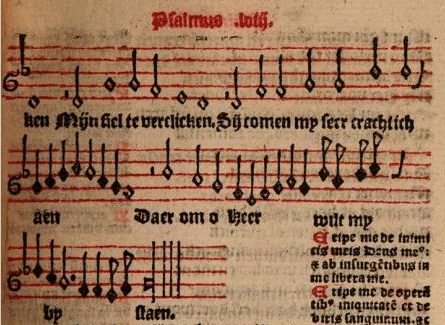 Psalmus .lviij.
ken Mijn siel te verclicken. Sij comen my seer crachtich
aen Daer om o heer wilt my
by staen.
Eripe me de inimi
cis meis Deus meꝰ:
& ab insurgẽtibus in
me libera me.
Eripe me de operã
tibꝰ iniquitatẽ & de
viris sanguinum. ac